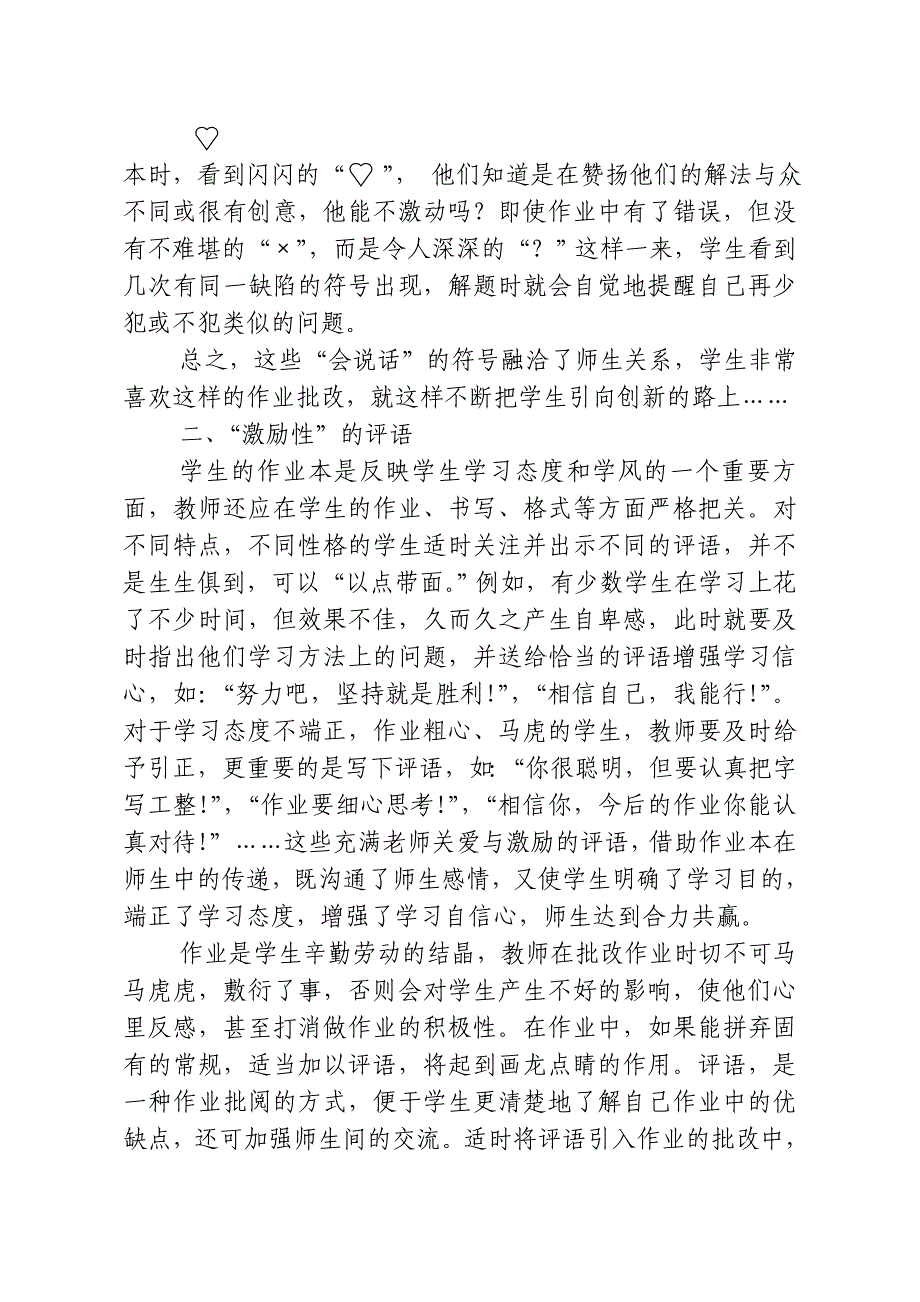 ♡
本时，看到闪闪的“♡”， 他们知道是在赞扬他们的解法与众
不同或很有创意，他能不激动吗？即使作业中有了错误，但没
有不难堪的“×”，而是令人深深的“？”这样一来，学生看到
几次有同一缺陷的符号出现，解题时就会自觉地提醒自己再少
犯或不犯类似的问题。
总之，这些“会说话”的符号融洽了师生关系，学生非常
喜欢这样的作业批改，就这样不断把学生引向创新的路上……
二、“激励性”的评语
学生的作业本是反映学生学习态度和学风的一个重要方
面，教师还应在学生的作业、书写、格式等方面严格把关。对
不同特点，不同性格的学生适时关注并出示不同的评语，并不
是生生俱到，可以“以点带面。”例如，有少数学生在学习上花
了不少时间，但效果不佳，久而久之产生自卑感，此时就要及
时指出他们学习方法上的问题，并送给恰当的评语增强学习信
心，如：“努力吧，坚持就是胜利！”，“相信自己，我能行！”。
对于学习态度不端正，作业粗心、马虎的学生，教师要及时给
予引正，更重要的是写下评语，如：“你很聪明，但要认真把字
写工整！”，“作业要细心思考！”，“相信你，今后的作业你能认
真对待！”……这些充满老师关爱与激励的评语，借助作业本在
师生中的传递，既沟通了师生感情，又使学生明确了学习目的，
端正了学习态度，增强了学习自信心，师生达到合力共赢。
作业是学生辛勤劳动的结晶，教师在批改作业时切不可马
马虎虎，敷衍了事，否则会对学生产生不好的影响，使他们心
里反感，甚至打消做作业的积极性。在作业中，如果能拼弃固
有的常规，适当加以评语，将起到画龙点晴的作用。评语，是
一种作业批阅的方式，便于学生更清楚地了解自己作业中的优
缺点，还可加强师生间的交流。适时将评语引入作业的批改中，